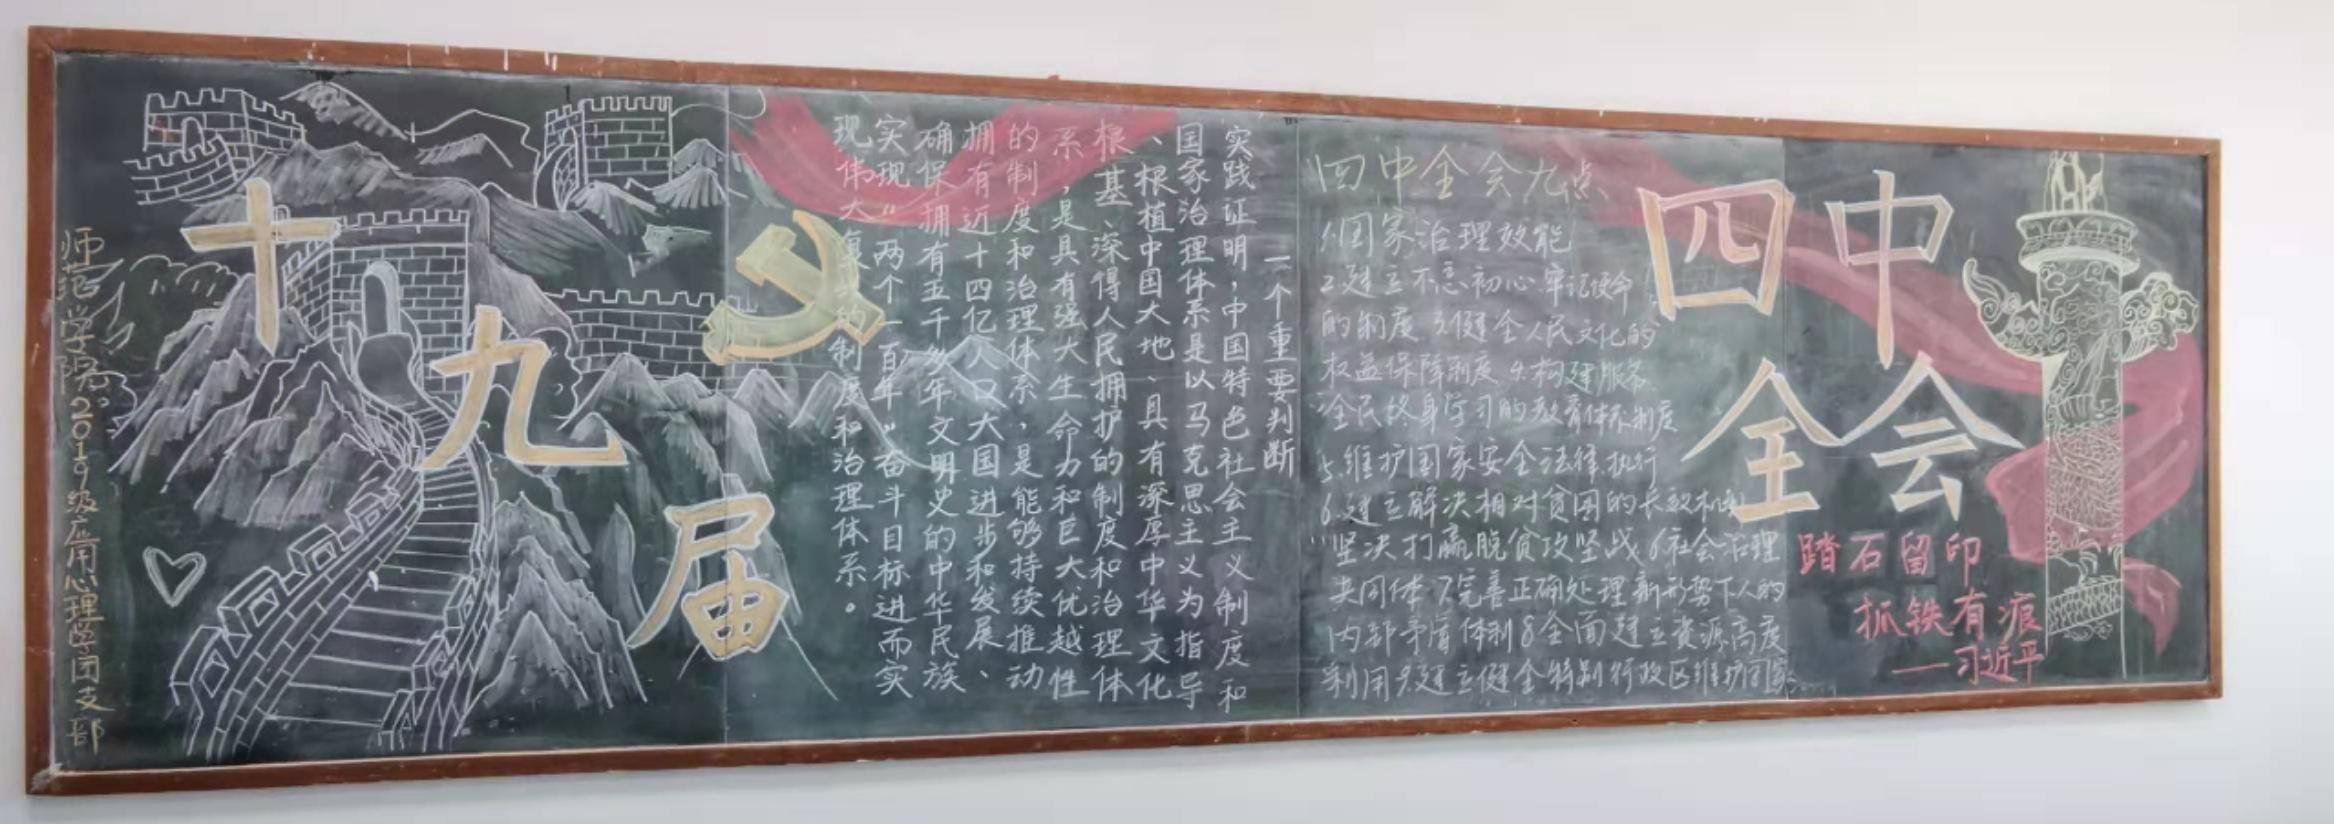 师范学院2019级应用心理学团支部
十九届
四中
全会
一个重要判断
实践证明，中国特色社会主义制度和
国家治理体系是以马克思主义为指导
、根植中国大地、具有深厚中华文化
根基、深得人民拥护的制度和治理体
系，是具有强大生命力和巨大优越性
的制度和治理体系，是能够持续推动
拥有近十四亿人口大国进步和发展、
确保拥有五千多年文明史的中华民族
实现“两个一百年”奋斗目标进而实
现伟大复兴的制度和治理体系。
四中全会九点
1.国家治理效能
2.建立不忘初心 牢记使命
的制度 3.健全人民文化的
权益保障制度 4.构建服务
全民终身学习的教育体系制度
5.维护国家安全法律执行
6.建立解决相对贫困的长效机制
坚决打赢脱贫攻坚战 6社会治理
共同体 7完善正确处理新形势下人的
内部矛盾体制 8全面建立资源高度
利用 9.建立健全特别行政区维护国家
踏石留印
抓铁有痕
——习近平